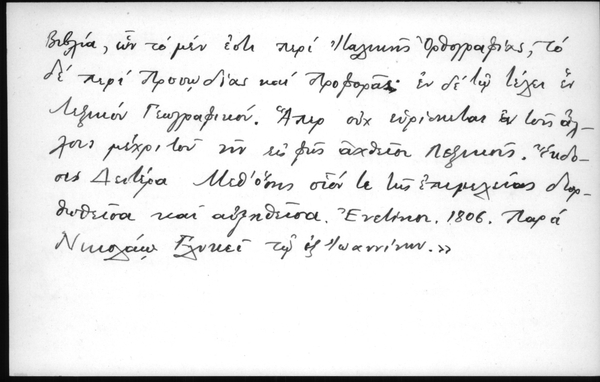 Βιβλία, ὧν τὸ μέν ἐστι περὶ Ἰταλικῆς Ὀρθογραφίας, τὸ
δέ περί Προσῳδίας καί Προφορᾶς· ἐν δέ τῷ τέλει ἕν
Λεξικόν Γεωγραφικόν. Ἅπερ οὐχ εὑρίσκεται ἐν τοῖς ἄλ-
λοις μέχρι τοῦ νῦν εἰς φῶς ἀχθεῖσι Λεξικοῖς. Ἔκδο-
σις Δευτέρα Μεθ' ὅσης οἷόν τε τῆς ἐπιμελείας διορ-
θωθεῖσα καί αὐξηθεῖσα. Ἐνετίησι. 1806. Παρά
Νικολάῳ Γλυκεῖ τῷ ἐξ Ἰωαννίνων.»